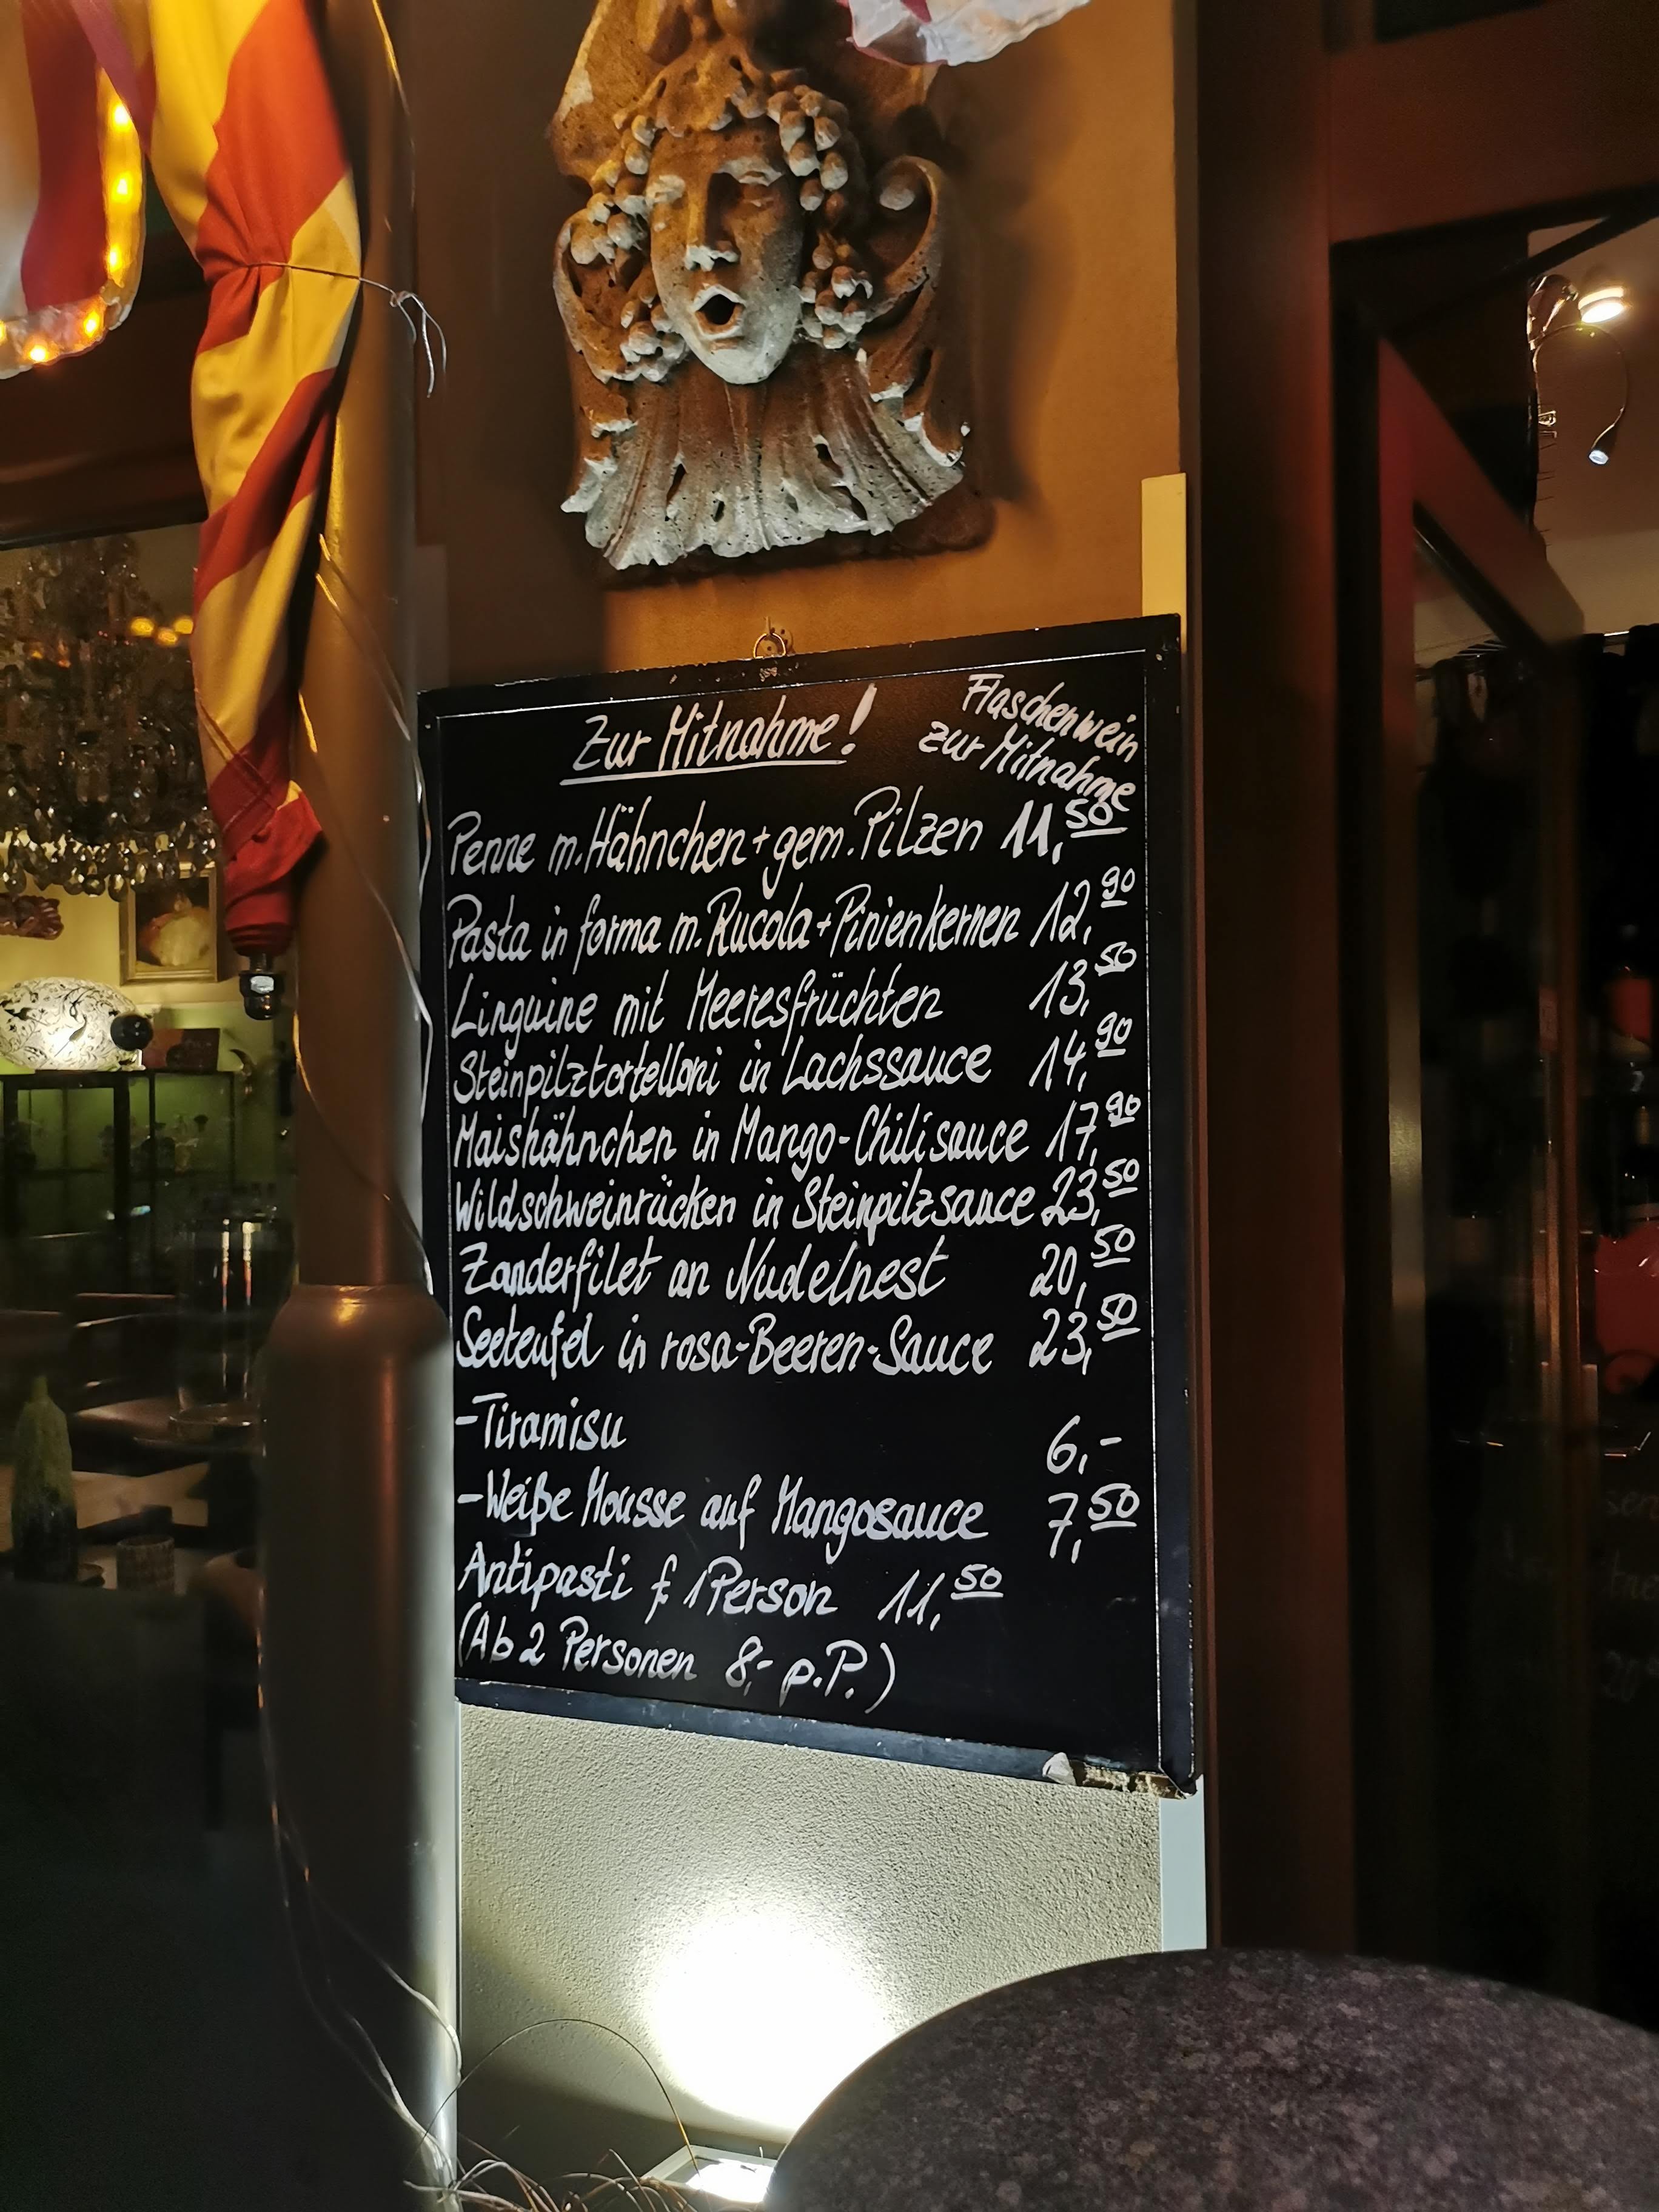 Zur Mitnahme!
Flaschenwein
zur Mitnahme
Penne m. Hähnchen + gem. Pilzen 11,50
Pasta in forma m. Rucola + Pinienkernen 12,90
Linguine mit Meeresfrüchten 13,50
Steinpilztortelloni in Lachssauce 14,90
Maishähnchen in Mango-Chilisauce 17,90
Wildschweinrücken in Steinpilzsauce 23,50
Zanderfilet an Nudelnest 20,50
Seeteufel in rosa-Beeren-Sauce 23,50
-Tiramisu 6,-
-Weiße Mousse auf Mangosauce 7,50
Antipasti f. 1 Person 11,50
(Ab 2 Personen 8,- p.P.)